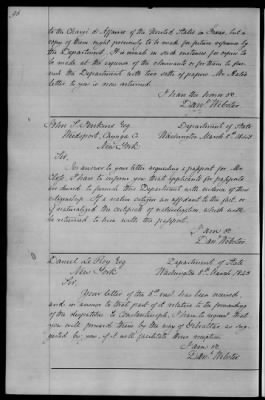 to the Chargé d'Affaires of the United States in Texas, but a
copy of them might previously to be made for future reference by
the Department. It is usual in such instances for copies to
be made at the expense of the claimants or for them to fur
nish the Department with two setts of papers. Mr. Hale's
letter to you is now returned.
I have the honor &c
Danl. Webster.
John S. Perkins Esq. Department of State
Weedsport, Cayuga Co. Washington March 8th 1843
New York
Sir,
In answer to your letter requesting a passport for Mr.
I have to inform you that applicants for passports
are desired to furnish this Department with evidence of their
citizenship. If a native citizen an affidavit to the fact, or
if naturalized the certificate of naturalization, which will
be returned to him with the passport.
I am &c
Danl. Webster
Daniel Le Roy Esq Department of State
New York Washington 8th March, 1843
Sir,
Your letter of the 5th inst. has been received,
and in answer to that part of it relative to the forwarding
of the despatches to Constantinople, I have to request that
you will forward them by the way of Gibraltar as sug
gested by you, if it will facilitate their reception.
I am &c.
Danl. Webster